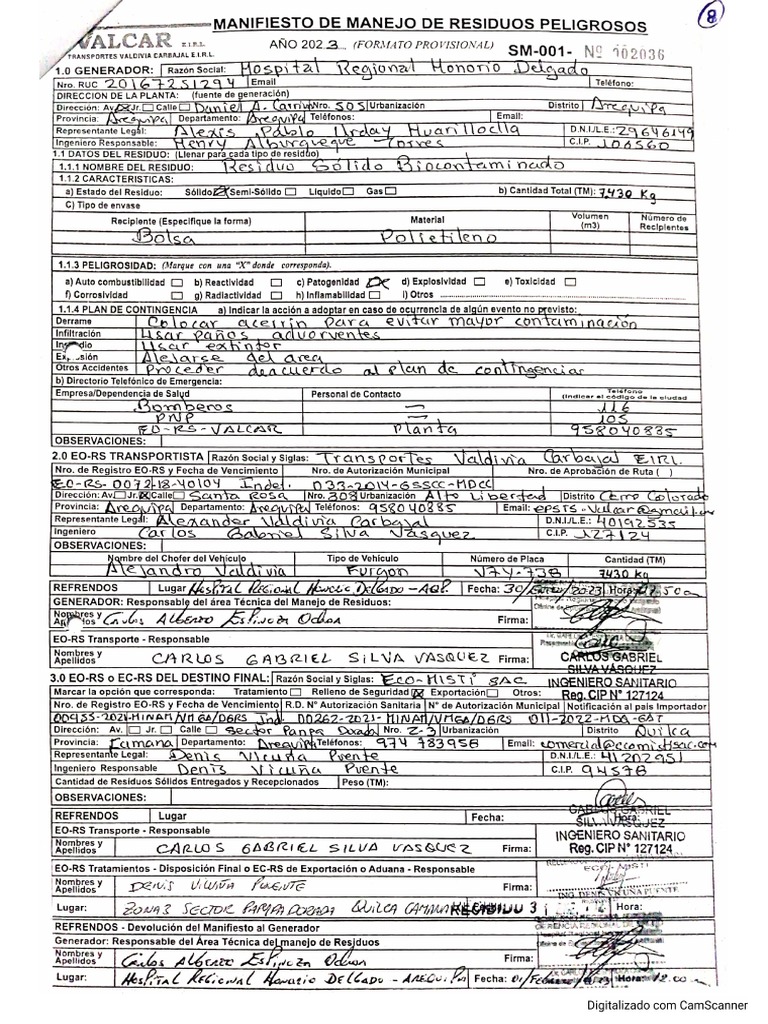 8
VALCAR E.I.R.L.
TRANSPORTES VALDIVIA CARBAJAL E.I.R.L.
MANIFIESTO DE MANEJO DE RESIDUOS PELIGROSOS
AÑO 2023 (FORMATO PROVISIONAL) SM-001- Nº 002036
1.0 GENERADOR: Razón Social: Hospital Regional Honorio Delgado
Nro. RUC 20167251294 Email Teléfono:
DIRECCION DE LA PLANTA: (fuente de generación)
Dirección: Av. Jr. Calle Daniel A. Carrion Nro. 505 Urbanización Distrito Arequipa
Provincia: Arequipa Departamento: Arequipa Teléfonos: Email:
Representante Legal: Alexis Pablo Urday Huarilloclla D.N.I./L.E.: 29646149
Ingeniero Responsable: Henry Alburqueque Torres C.I.P. 106560
1.1 DATOS DEL RESIDUO: (Llenar para cada tipo de residuo)
1.1.1 NOMBRE DEL RESIDUO: Residuo Sólido Biocontaminado
1.1.2 CARACTERISTICAS:
a) Estado del Residuo: Sólido Semi-Sólido Líquido Gas b) Cantidad Total (TM): 7430 Kg
C) Tipo de envase
Recipiente (Especifique la forma) Material Volumen (m3) Número de Recipientes
Bolsa Polietileno
1.1.3 PELIGROSIDAD: (Marque con una "X" donde corresponda).
a) Auto combustibilidad b) Reactividad c) Patogenidad d) Explosividad e) Toxicidad
f) Corrosividad g) Radiactividad h) Inflamabilidad i) Otros
1.1.4 PLAN DE CONTINGENCIA a) Indicar la acción a adoptar en caso de ocurrencia de algún evento no previsto:
Derrame Colocar acerrin para evitar mayor contaminación
Infiltración Usar paños advorventes
Incendio Usar extintor
Explosión Alejarse del area
Otros Accidentes Proceder deacuerdo al plan de contingencias
b) Directorio Telefónico de Emergencia:
Empresa/Dependencia de Salud Personal de Contacto Teléfono (Indicar el código de la ciudad
Bomberos — 116
PNP — 105
EO-RS-VALCAR Planta 958040835
OBSERVACIONES:
2.0 EO-RS TRANSPORTISTA Razón Social y Siglas: Transportes Valdivia Carbajal EIRL.
Nro. de Registro EO-RS y Fecha de Vencimiento Nro. de Autorización Municipal Nro. de Aprobación de Ruta ( )
EO-RS-0072-18-40104 Indef. 033-2014-GSSCC-MDCC
Dirección: Av Jr. Calle Santa Rosa Nro. 308 Urbanización Alto Libertad Distrito Cerro Colorado
Provincia: Arequipa Departamento: Arequipa Teléfonos: 958040885 Email: epsrs-valcar@gmail.com
Representante Legal: Alexander Valdivia Carbajal D.N.I./L.E.: 40192535
Ingeniero Carlos Gabriel Silva Vásquez C.I.P. 127124
OBSERVACIONES:
Nombre del Chofer del Vehículo Tipo de Vehículo Número de Placa Cantidad (TM)
Alejandro Valdivia Furgon V7Y-738 7430 kg
REFRENDOS Lugar Hospital Regional Honorio Delgado - AQP. Fecha: 30/Enero/2023 Hora: 17.50
GENERADOR: Responsable del área Técnica del Manejo de Residuos:
Nombres y Apellidos Carlos Alberto Espinoza Ochoa Firma:
EO-RS Transporte - Responsable
Nombres y Apellidos CARLOS GABRIEL SILVA VASQUEZ Firma:
CARLOS GABRIEL
SILVA VÁSQUEZ
INGENIERO SANITARIO
Reg. CIP N° 127124
3.0 EO-RS o EC-RS DEL DESTINO FINAL: Razón Social y Siglas: ECO-MISTI SAC
Marcar la opción que corresponda: Tratamiento Relleno de Seguridad Exportación Otros:
Nro. de Registro EO-RS y Fecha de Vencimiento R.D. N° Autorización Sanitaria N° de Autorización Municipal Notificación al país Importador
00455-2021-MINAM/VMGA/DGRS Ind. 00262-2021-MINAM/VMGA/DGRS 011-2022-MDQ-GAT
Dirección: Av. Jr. Calle Sector Pampa Dorada Nro. Z-3 Urbanización Distrito Quilca
Provincia: Camana Departamento: Arequipa Teléfonos: 974 783958 Email: comercial@ecomistisac.com
Representante Legal: Denis Vicuña Puente D.N.I./L.E.: 41202951
Ingeniero Responsable Denis Vicuña Puente C.I.P. 94578
Cantidad de Residuos Sólidos Entregados y Recepcionados Peso (TM):
OBSERVACIONES:
REFRENDOS Lugar Fecha: Hora:
CARLOS GABRIEL
SILVA VÁSQUEZ
INGENIERO SANITARIO
Reg. CIP N° 127124
EO-RS Transporte - Responsable
Nombres y Apellidos CARLOS GABRIEL SILVA VASQUEZ Firma:
EO-RS Tratamientos - Disposición Final o EC-RS de Exportación o Aduana - Responsable
Nombres y Apellidos DENIS VICUÑA PUENTE Firma:
ING. DENIS VICUÑA PUENTE
Lugar: ZONA 3 SECTOR PAMPA DORADA QUILCA CAMANA RECIBIDO 31 Hora:
REFRENDOS - Devolución del Manifiesto al Generador
Generador: Responsable del Área Técnica del manejo de Residuos
Nombres y Apellidos Carlos Alberto Espinoza Ochoa Firma:
Lugar: Hospital Regional Honorio Delgado - Arequipa Fecha: 01/Febrero Hora: 12.00
Digitalizado com CamScanner